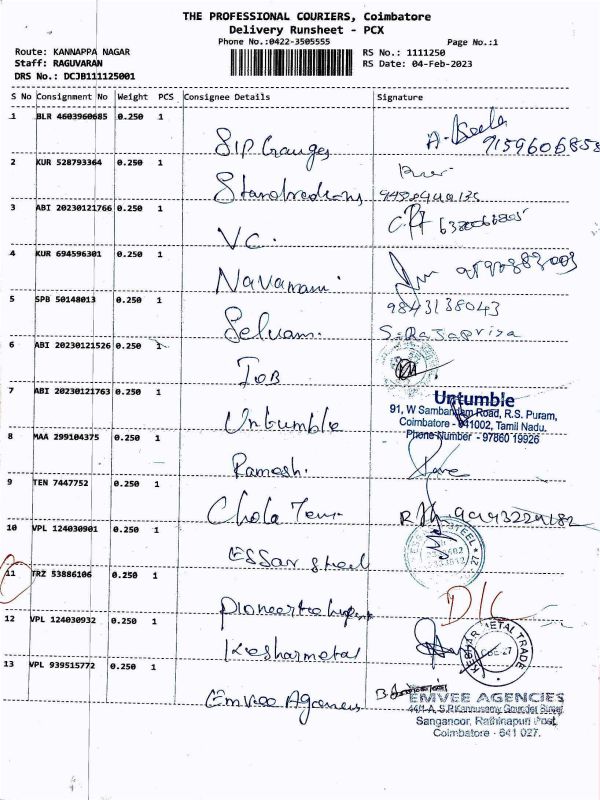 THE PROFESSIONAL COURIERS, Coimbatore
Delivery Runsheet - PCX
Phone No.:0422-3505555
Page No.:1
Route: KANNAPPA NAGAR
RS No.: 1111250
Staff: RAGUVARAN
RS Date: 04-Feb-2023
DRS No.: DCJB111125001
S No Consignment No Weight PCS Consignee Details Signature
1 BLR 4603960685 0.250 1
2 KUR 528793364 0.250 1
3 ABI 20230121766 0.250 1
V.C.
4 KUR 694596301 0.250 1
Navamani.
5 SPB 50148013 0.250 1
9843138043
Selvam. S.Rajapriya
6 ABI 20230121526 0.250 1
IOB
7 ABI 20230121763 0.250 1
Untumble
91, W Sambandam Road, R.S. Puram,
Coimbatore - 641002, Tamil Nadu.
Phone Number - 97860 19926
Untumble
8 MAA 299104375 0.250 1
Ramesh.
9 TEN 7447752 0.250 1
Chola
10 VPL 124030901 0.250 1
Essar steel
11 TRZ 53886106 0.250 1
D/C
12 VPL 124030932 0.250 1
Keshar metal
KESHAR METAL TRADE
CBE-27
13 VPL 939515772 0.250 1
Emvee Agencies
EMVEE AGENCIES
44/1-A, S.P.Kannusamy Gounder Street
Sanganoor, Rathinapuri Post,
Coimbatore - 641 027.